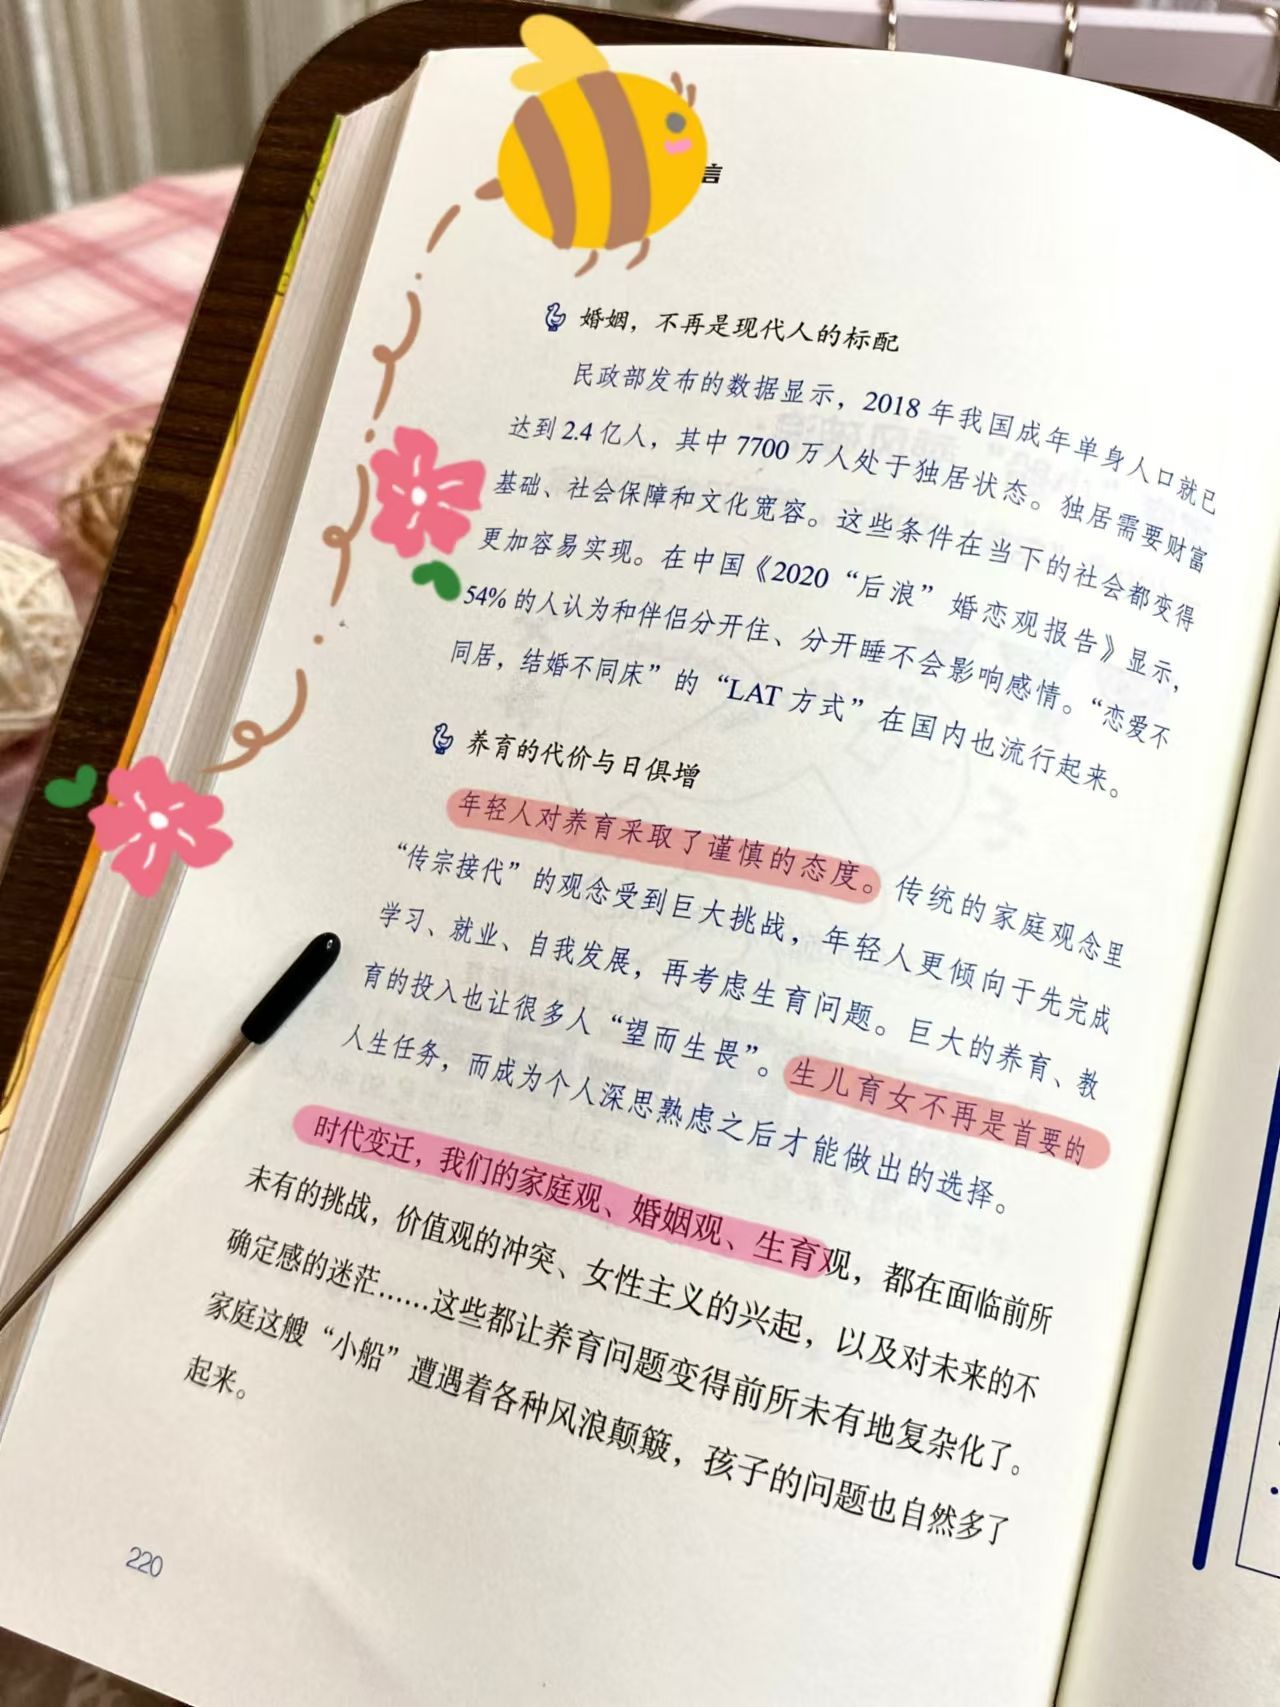 言
婚姻，不再是现代人的标配
民政部发布的数据显示，2018 年我国成年单身人口就已
达到 2.4 亿人，其中 7700 万人处于独居状态。独居需要财富
基础、社会保障和文化宽容。这些条件在当下的社会都变得
更加容易实现。在中国《2020 “后浪” 婚恋观报告》显示，
54% 的人认为和伴侣分开住、分开睡不会影响感情。“恋爱不
同居，结婚不同床” 的 “LAT 方式” 在国内也流行起来。
养育的代价与日俱增
年轻人对养育采取了谨慎的态度。传统的家庭观念里
“传宗接代” 的观念受到巨大挑战，年轻人更倾向于先完成
学习、就业、自我发展，再考虑生育问题。巨大的养育、教
育的投入也让很多人 “望而生畏”。生儿育女不再是首要的
人生任务，而成为个人深思熟虑之后才能做出的选择。
时代变迁，我们的家庭观、婚姻观、生育观，都在面临前所
未有的挑战，价值观的冲突、女性主义的兴起，以及对未来的不
确定感的迷茫……这些都让养育问题变得前所未有地复杂化了。
家庭这艘 “小船” 遭遇着各种风浪颠簸，孩子的问题也自然多了
起来。
220